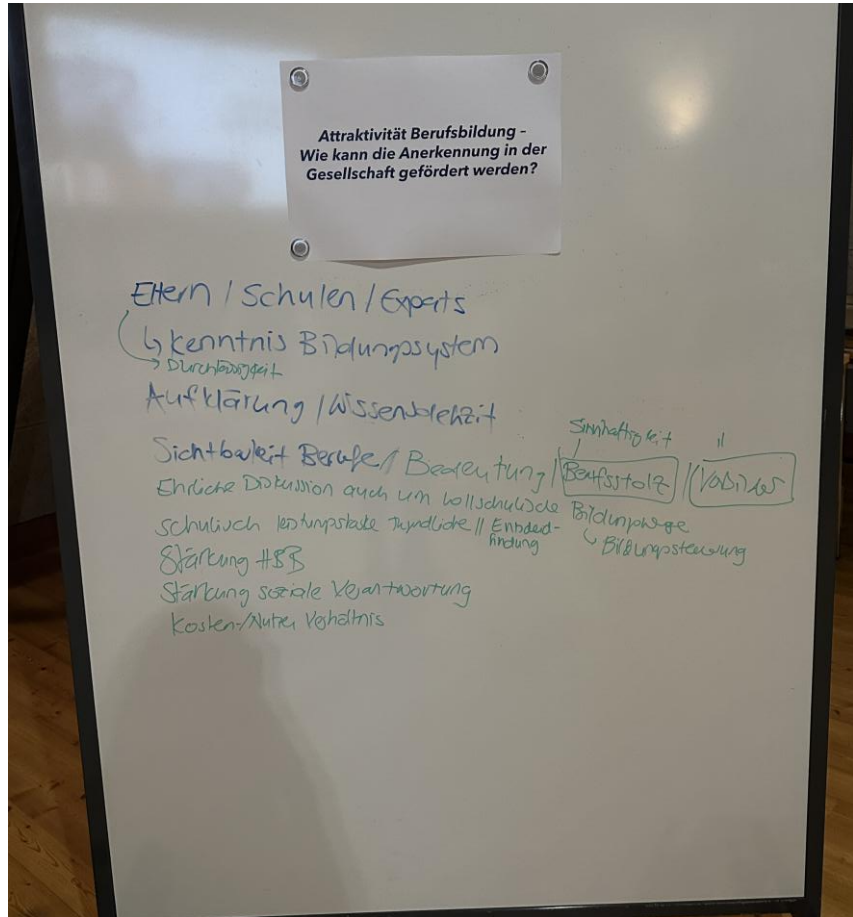 Attraktivität Berufsbildung –
Wie kann die Anerkennung in der
Gesellschaft gefördert werden?
Eltern / Schulen / Experts
↳ Kenntnis Bildungssystem
→ Durchlässigkeit
Aufklärung / Wissensdefizit
Sinnhaftigkeit "
Sichtbarkeit Berufe / Bedeutung / Berufsstolz / Vorbilder
Ehrliche Diskussion auch um vollschulische Bildungswege
↳ Bildungssteuerung
schulisch leistungsstarke Jugendliche //
Stärkung HBB
Stärkung soziale Verantwortung
Kosten-/Nutzen Verhältnis